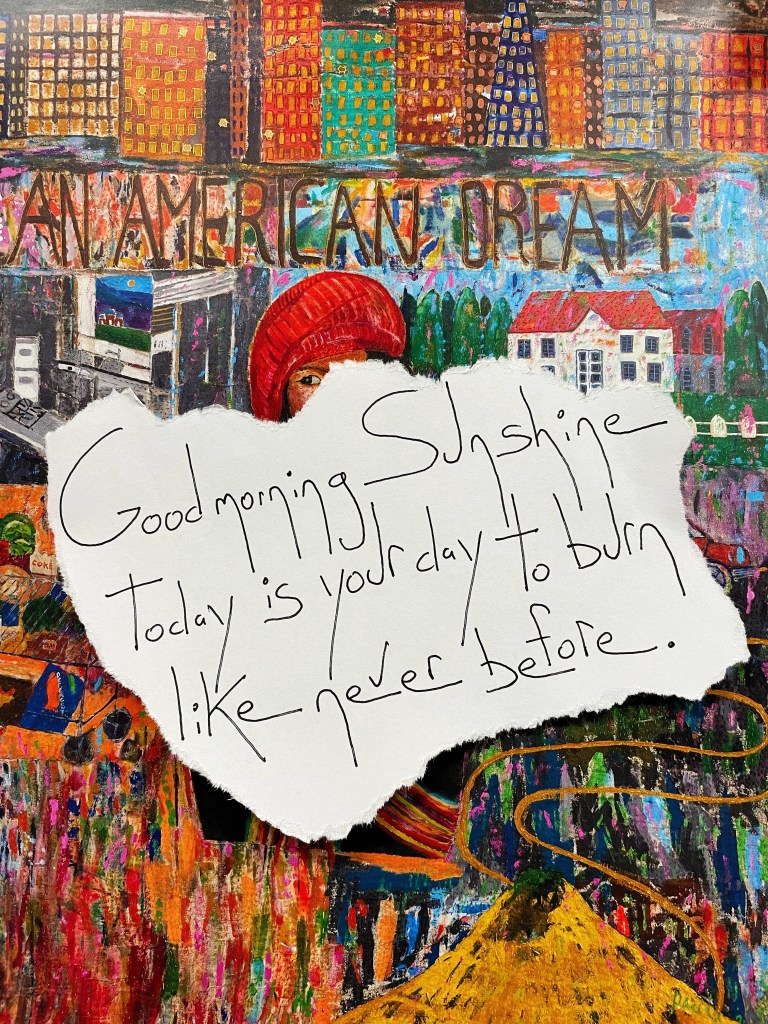 AN AMERICAN DREAM
Good morning Sunshine
Today is your day to burn
like never before.
COKE